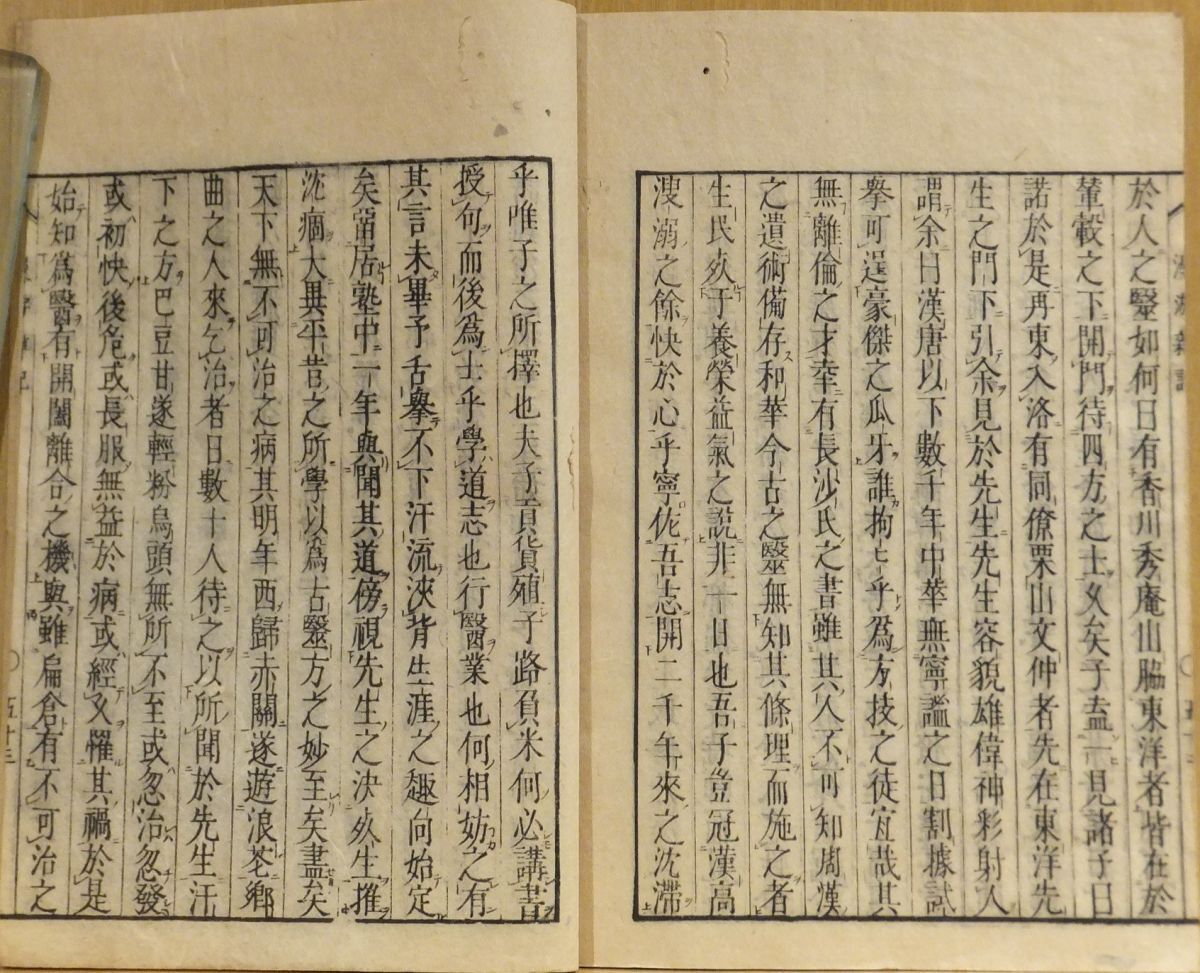 於人之毉如何曰有香川秀庵山脇東洋者皆在於
輦轂之下開門待四方之士久矣子盍一見諸予曰
諾於是再東入洛有同僚栗山文仲者先在東洋先
生之門下引余見於先生先生容貌雄偉神彩射人
謂余曰漢唐以下數千年中華無寧謐之日割據試
擧可逞豪傑之瓜牙誰拘乎爲方技之徒宜哉其
無離倫之才幸有長沙氏之書雖其人不可知周漢
之遺術備存和華今古之毉無知其條理而施之者
生民夭于養榮益氣之說非一日也吾子豈冠漢高
溲溺之餘快於心乎寧佐吾志開二千年來之沈滯
乎唯子之所擇也夫子貢貨殖子路負米何必講書
授句而後爲士乎學道志也行醫業也何相妨之有
其言未畢予舌擧不下汗流浹背生涯之趣向始定
矣當居塾中一年與聞其道傍視先生之決死生推
沈痼大異平昔之所學以爲古毉方之妙至矣盡矣
天下無不可治之病其明年西歸赤關遂遊浪花鄉
曲之人來乞治者日數十人待之以所聞於先生汗
下之方巴豆甘遂輕粉烏頭無所不至或忽治忽發
或初快後危或長服無益於病或經久罹其禍於是
始知爲醫有開闔離合之機與雖扁倉有不可治之
五十三